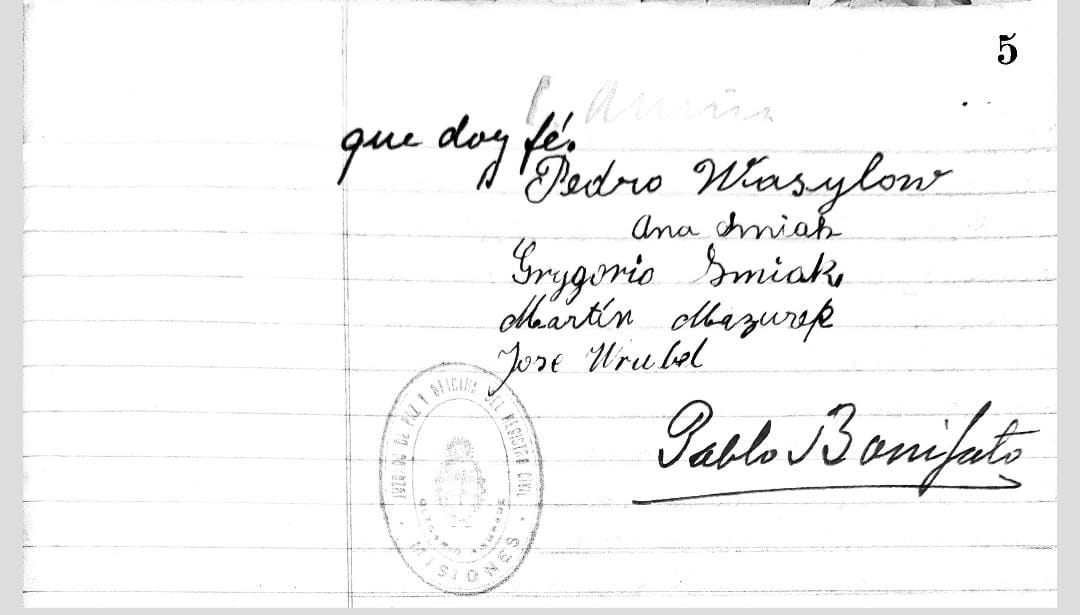 5
que doy fé.
Pedro Wasylow
Ana Smiak
Grygorio Smiak
Martín Mazurek
Jose Wrubel
Pablo Bonifato
JUZGADO DE PAZ Y OFICINA DEL REGISTRO CIVIL
MISIONES